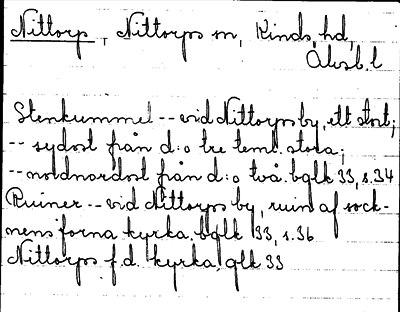 Nittorp, Nittorps sn, Kinds hd,
Älvsb. l
Stenkummel -- vid Nittorps by, ett stort;
-- sydost från d:o tre teml. stora;
-- nordnordost från d:o två. bglk 33, s.34
Ruiner -- vid Nittorps by, ruin af sock-
nens forna kyrka. bglk 33, s.36
Nittorps f.d. kyrka, glk 33